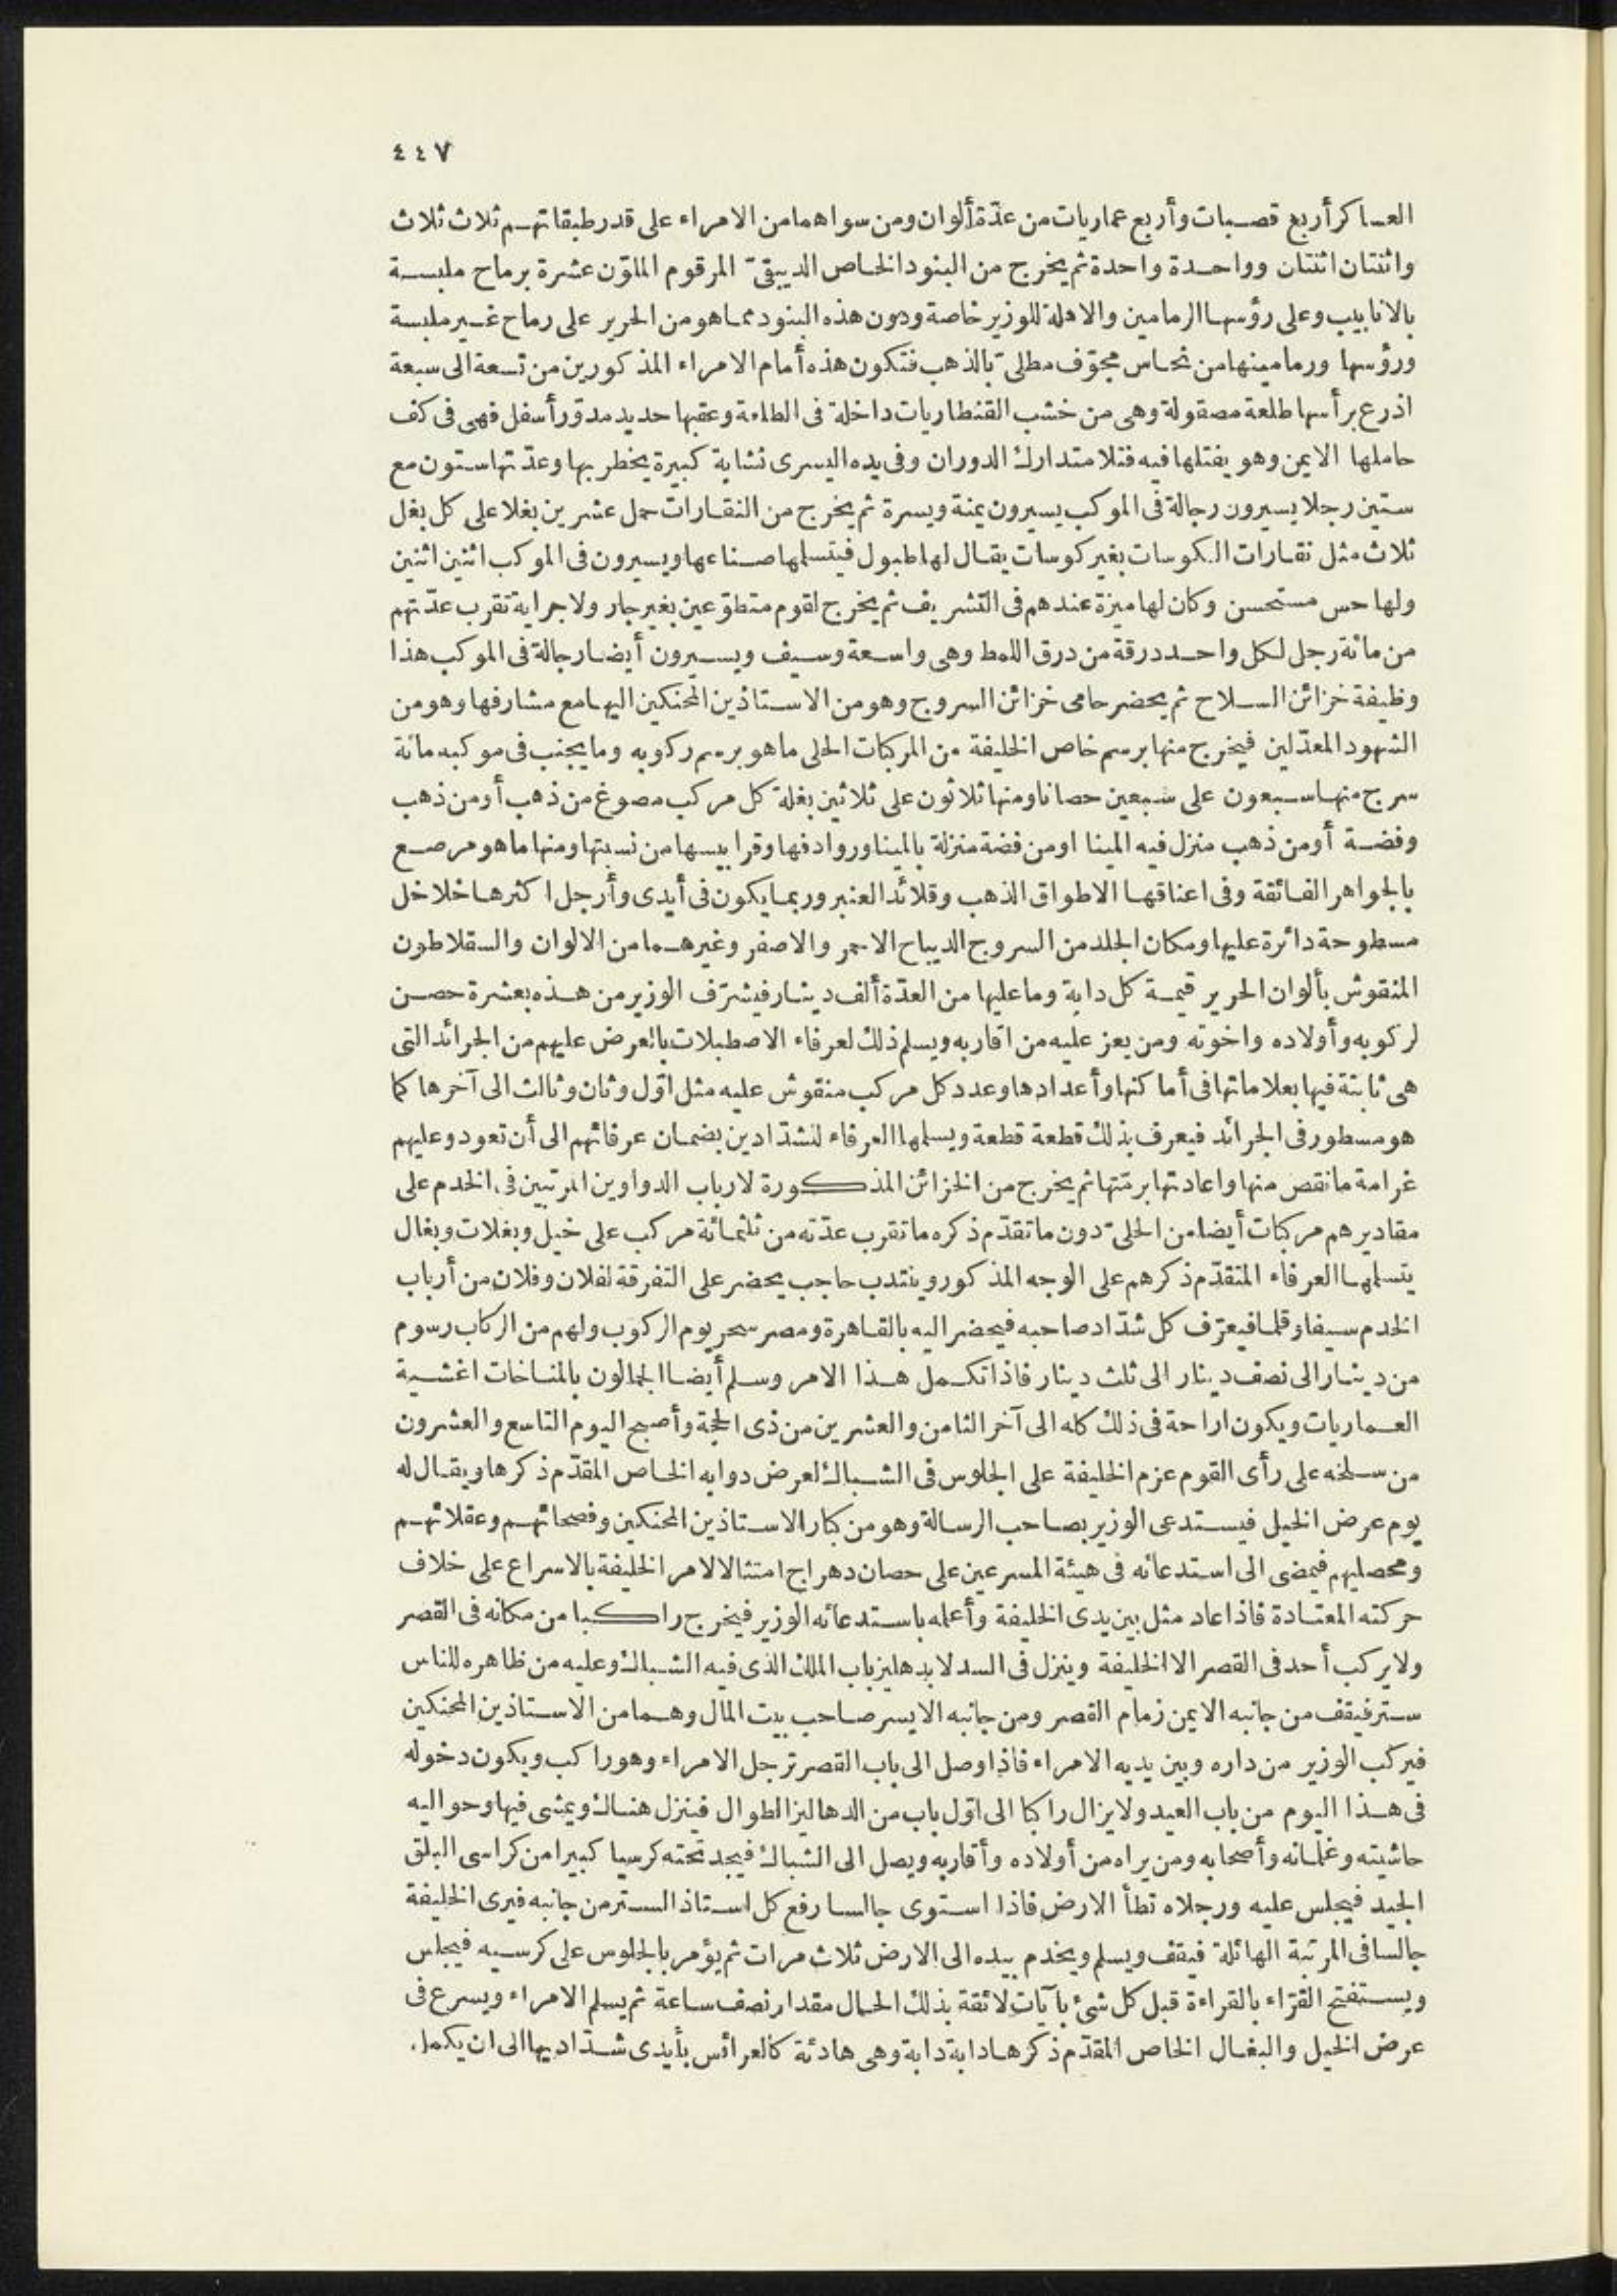 ٤٤٧
العساكر أربع قصبات وأربع عماريات من عدّة ألوان ومن سواهما من الامراء على قدر طبقاتهم ثلاث ثلاث
واثنتان اثنتان وواحدة واحدة ثم يخرج من البنود الخاص الدبيقىّ المرقوم الملوّن عشرة برماح ملبسة
بالانابيب وعلى رؤسها الرمامين والاهلة للوزير خاصة ودون هذه البنود مما هو من الحرير على رماح غير ملبسة
ورؤسها ورمامينها من نحاس مجوّف مطلىّ بالذهب فتكون هذه أمام الامراء المذكورين من تسعة الى سبعة
اذرع برأسها طلعة مصقولة وهى من خشب القنطاريات داخلة فى الطلعة وعقبها حديد مدوّر أسفل فهى فى كف
حاملها الايمن وهو يفتلها فيه فتلا متدارك الدوران وفى يده اليسرى نشابة كبيرة يخطر بها وعدّتها ستون مع
ستين رجلا يسيرون رجالة فى الموكب يسيرون يمنة ويسرة ثم يخرج من النقارات حمل عشرين بغلا على كل بغل
ثلاث مثل نقارات الكوسات بغير كوسات يقال لها طبول فيتسلمها صناعها ويسيرون فى الموكب اثنين اثنين
ولها حس مستحسن وكان لها ميزة عندهم فى التشريف ثم يخرج لقوم متطوّعين بغير جار ولا جراية تقرب عدّتهم
من مائة رجل لكل واحد درقة من درق اللمط وهى واسعة وسيف ويسيرون أيضا رجالة فى الموكب هذا
وظيفة خزائن السلاح ثم يحضر حامى خزائن السروج وهو من الاستاذين المحنكين اليها مع مشارفها وهو من
الشهود المعدّلين فيخرج منها برسم خاص الخليفة من المركبات الحلى ما هو برسم ركوبه وما يجنب فى موكبه مائة
سرج منها سبعون على سبعين حصانا ومنها ثلاثون على ثلاثين بغلة كل مركب مصوغ من ذهب أو من ذهب
وفضة أو من ذهب منزل فيه المينا او من فضة منزلة بالمينا وروادفها وقرابيسها من نسبتها ومنها ما هو مرصع
بالجواهر الفائقة وفى اعناقها الاطواق الذهب وقلائد العنبر وربما يكون فى أيدى وأرجل اكثرها خلاخل
مسطوحة دائرة عليها ومكان الجلد من السروج الديباح الاحمر والاصفر وغيرهما من الالوان والسقلاطون
المنقوش بألوان الحرير قيمة كل دابة وما عليها من العدّة ألف دينار فيشرّف الوزير من هذه بعشرة حصن
لركوبه وأولاده واخوته ومن يعز عليه من اقاربه ويسلم ذلك لعرفاء الاصطبلات بالعرض عليهم من الجرائد التى
هى ثابتة فيها بعلاماتها فى أماكنها وأعدادها وعدد كل مركب منقوش عليه مثل اوّل وثان وثالث الى آخرها كما
هو مسطور فى الجرائد فيعرف بذلك قطعة قطعة ويسلمها العرفاء للشدّادين بضمان عرفائهم الى أن تعود وعليهم
غرامة ما نقص منها واعادتها برمّتها ثم يخرج من الخزائن المذكورة لارباب الدواوين المرتبين فى الخدم على
مقاديرهم مركبات أيضا من الحلىّ دون ما تقدّم ذكره ما تقرب عدّته من ثلثمائة مركب على خيل وبغلات وبغال
يتسلمها العرفاء المتقدّم ذكرهم على الوجه المذكور وينتدب حاجب يحضر على التفرقة لفلان وفلان من أرباب
الخدم سيفا وقلما فيعرّف كل شدّاد صاحبه فيحضر اليه بالقاهرة ومصر سحر يوم الركوب ولهم من الركاب رسوم
من دينار الى نصف دينار الى ثلث دينار فاذا تكمل هذا الامر وسلم أيضا الجمالون بالمناخات اغشية
العماريات ويكون اراحة فى ذلك كله الى آخر الثامن والعشرين من ذى الحجة وأصبح اليوم التاسع والعشرون
من سلخه على رأى القوم عزم الخليفة على الجلوس فى الشباك لعرض دوابه الخاص المقدّم ذكرها ويقال له
يوم عرض الخيل فيستدعى الوزير بصاحب الرسالة وهو من كبار الاستاذين المحنكين وفصحائهم وعقلائهم
ومحصليهم فيمضى الى استدعائه فى هيئة المسرعين على حصان دهراج امتثالا لامر الخليفة بالاسراع على خلاف
حركته المعتادة فاذا عاد مثل بين يدى الخليفة وأعلمه باستدعائه الوزير فيخرج راكبا من مكانه فى القصر
ولا يركب أحد فى القصر الا الخليفة وينزل فى السدلا بدهليز باب الملك الذى فيه الشباك وعليه من ظاهره للناس
ستر فيقف من جانبه الايمن زمام القصر ومن جانبه الايسر صاحب بيت المال وهما من الاستاذين المحنكين
فيركب الوزير من داره وبين يديه الامراء فاذا وصل الى باب القصر ترجل الامراء وهو راكب ويكون دخوله
فى هذا اليوم من باب العيد ولا يزال راكبا الى اوّل باب من الدهاليز الطوال فينزل هناك ويمشى فيها وحواليه
حاشيته وغلمانه وأصحابه ومن يراه من أولاده وأقاربه ويصل الى الشباك فيجد تحته كرسيا كبيرا من كراسى البلق
الجيد فيجلس عليه ورجلاه تطأ الارض فاذا استوى جالسا رفع كل استاذ الستر من جانبه فيرى الخليفة
جالسا فى المرتبة الهائلة فيقف ويسلم ويخدم بيده الى الارض ثلاث مرات ثم يؤمر بالجلوس على كرسيه فيجلس
ويستفتح القرّاء بالقراءة قبل كل شئ بآيات لائقة بذلك الحال مقدار نصف ساعة ثم يسلم الامراء ويسرع فى
عرض الخيل والبغال الخاص المقدّم ذكرها دابة دابة وهى هادئة كالعرائس بأيدى شدّاديها الى ان يكمل.